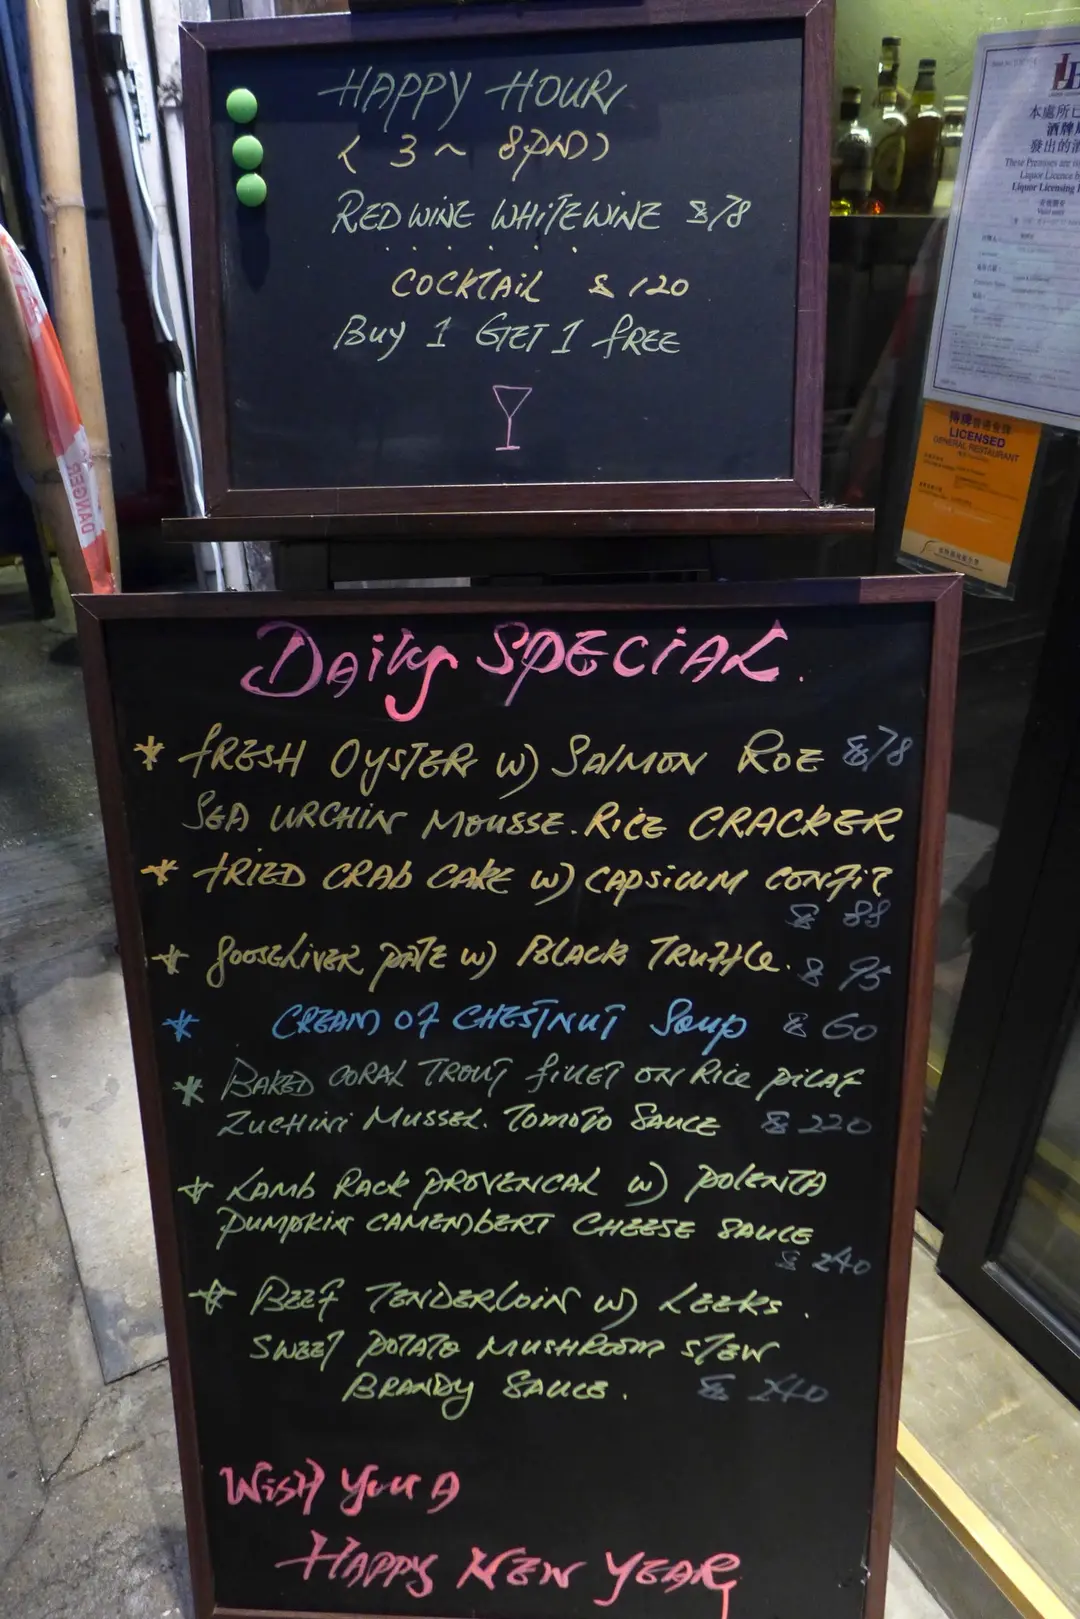 HAPPY HOUR
( 3 ~ 8PM)
RED WINE WHITE WINE $78
COCKTAIL $120
BUY 1 GET 1 FREE
本處所已
酒牌
發出的酒
These Premises are
Liquor Licence
Liquor Licensing
持牌普通食肆
LICENSED
GENERAL RESTAURANT
DANGER
Daily SPECIAL.
* FRESH OYSTER W) SALMON ROE $78
SEA URCHIN MOUSSE. RICE CRACKER
* FRIED CRAB CAKE W) CAPSICUM CONFIT
$ 88
* GOOSELIVER PATE W) BLACK TRUFFLE. $ 95
* CREAM OF CHESTNUT SOUP $ 60
* BAKED CORAL TROUT FILLET ON RICE PILAF
ZUCHINI MUSSEL. TOMATO SAUCE $ 220
* LAMB RACK PROVENCAL W) POLENTA
PUMPKIN CAMEMBERT CHEESE SAUCE
$ 240
* BEEF TENDERLOIN W) LEEKS.
SWEET POTATO MUSHROOM STEW
BRANDY SAUCE. $ 240
WISH YOU A
HAPPY NEW YEAR